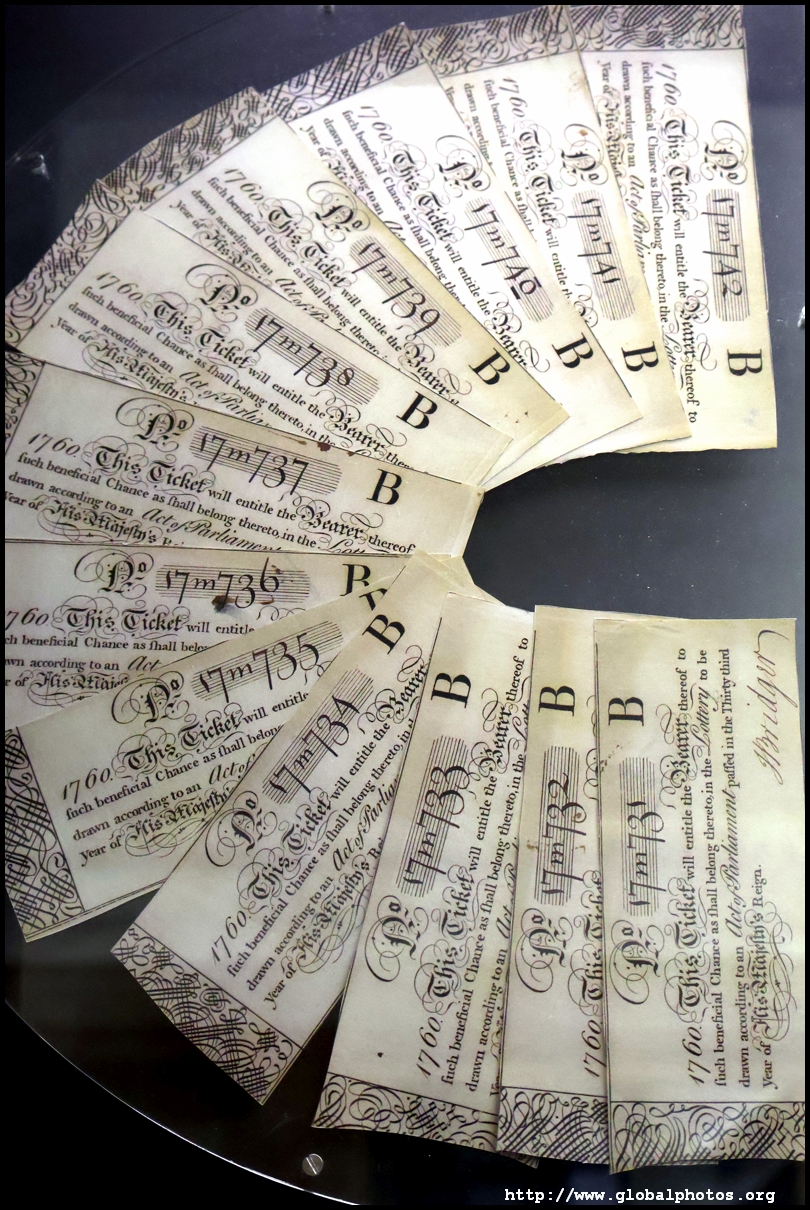 No 17m742 B
1760. This Ticket will entitle the Bearer thereof to
ſuch beneficial Chance as ſhall belong thereto, in the
drawn according to an Act of
Year of His
No 17m741 B
1760. This Ticket
ſuch beneficial
drawn according
No 17m740 B
1760. This Ticket will entitle the Bearer
ſuch beneficial Chance as ſhall belong
drawn according to an
Year of His
No 17m739 B
1760. This Ticket will entitle the Bearer
ſuch beneficial Chance as ſhall belong thereto,
drawn according to an Act of
Year of His
No 17m738 B
1760. This Ticket will entitle the Bearer
ſuch beneficial Chance as ſhall belong thereto, in the
drawn according to an Act of
Year of His Majeſty's
No 17m737 B
1760. This Ticket will entitle the Bearer thereof
ſuch beneficial Chance as ſhall belong thereto, in the
drawn according to an Act of Parliament
Year of His Majeſty's
No 17m736 B
1760. This Ticket will
beneficial Chance as ſhall
according to an Act
of His
No 17m735
1760. This Ticket will entitle
ſuch beneficial Chance as ſhall
drawn according to an Act of
Year of His Majeſty's
No 17m734 B
1760. This Ticket will entitle the Bearer
ſuch beneficial Chance as ſhall belong thereto, in
drawn according to an Act of
Year of His Majeſty's
No 17m733 B
1760. This Ticket will entitle the Bearer thereof to
ſuch beneficial Chance as ſhall belong thereto, in the
drawn according to an Act of
No 17m732 B
1760. This Ticket
No 17m731 B
1760. This Ticket will entitle the Bearer thereof to
ſuch beneficial Chance as ſhall belong thereto, in the Lottery to be
drawn according to an Act of Parliament paſſed in the Thirty third
Year of His Majeſty's Reign.
Bridger
http://www.globalphotos.org